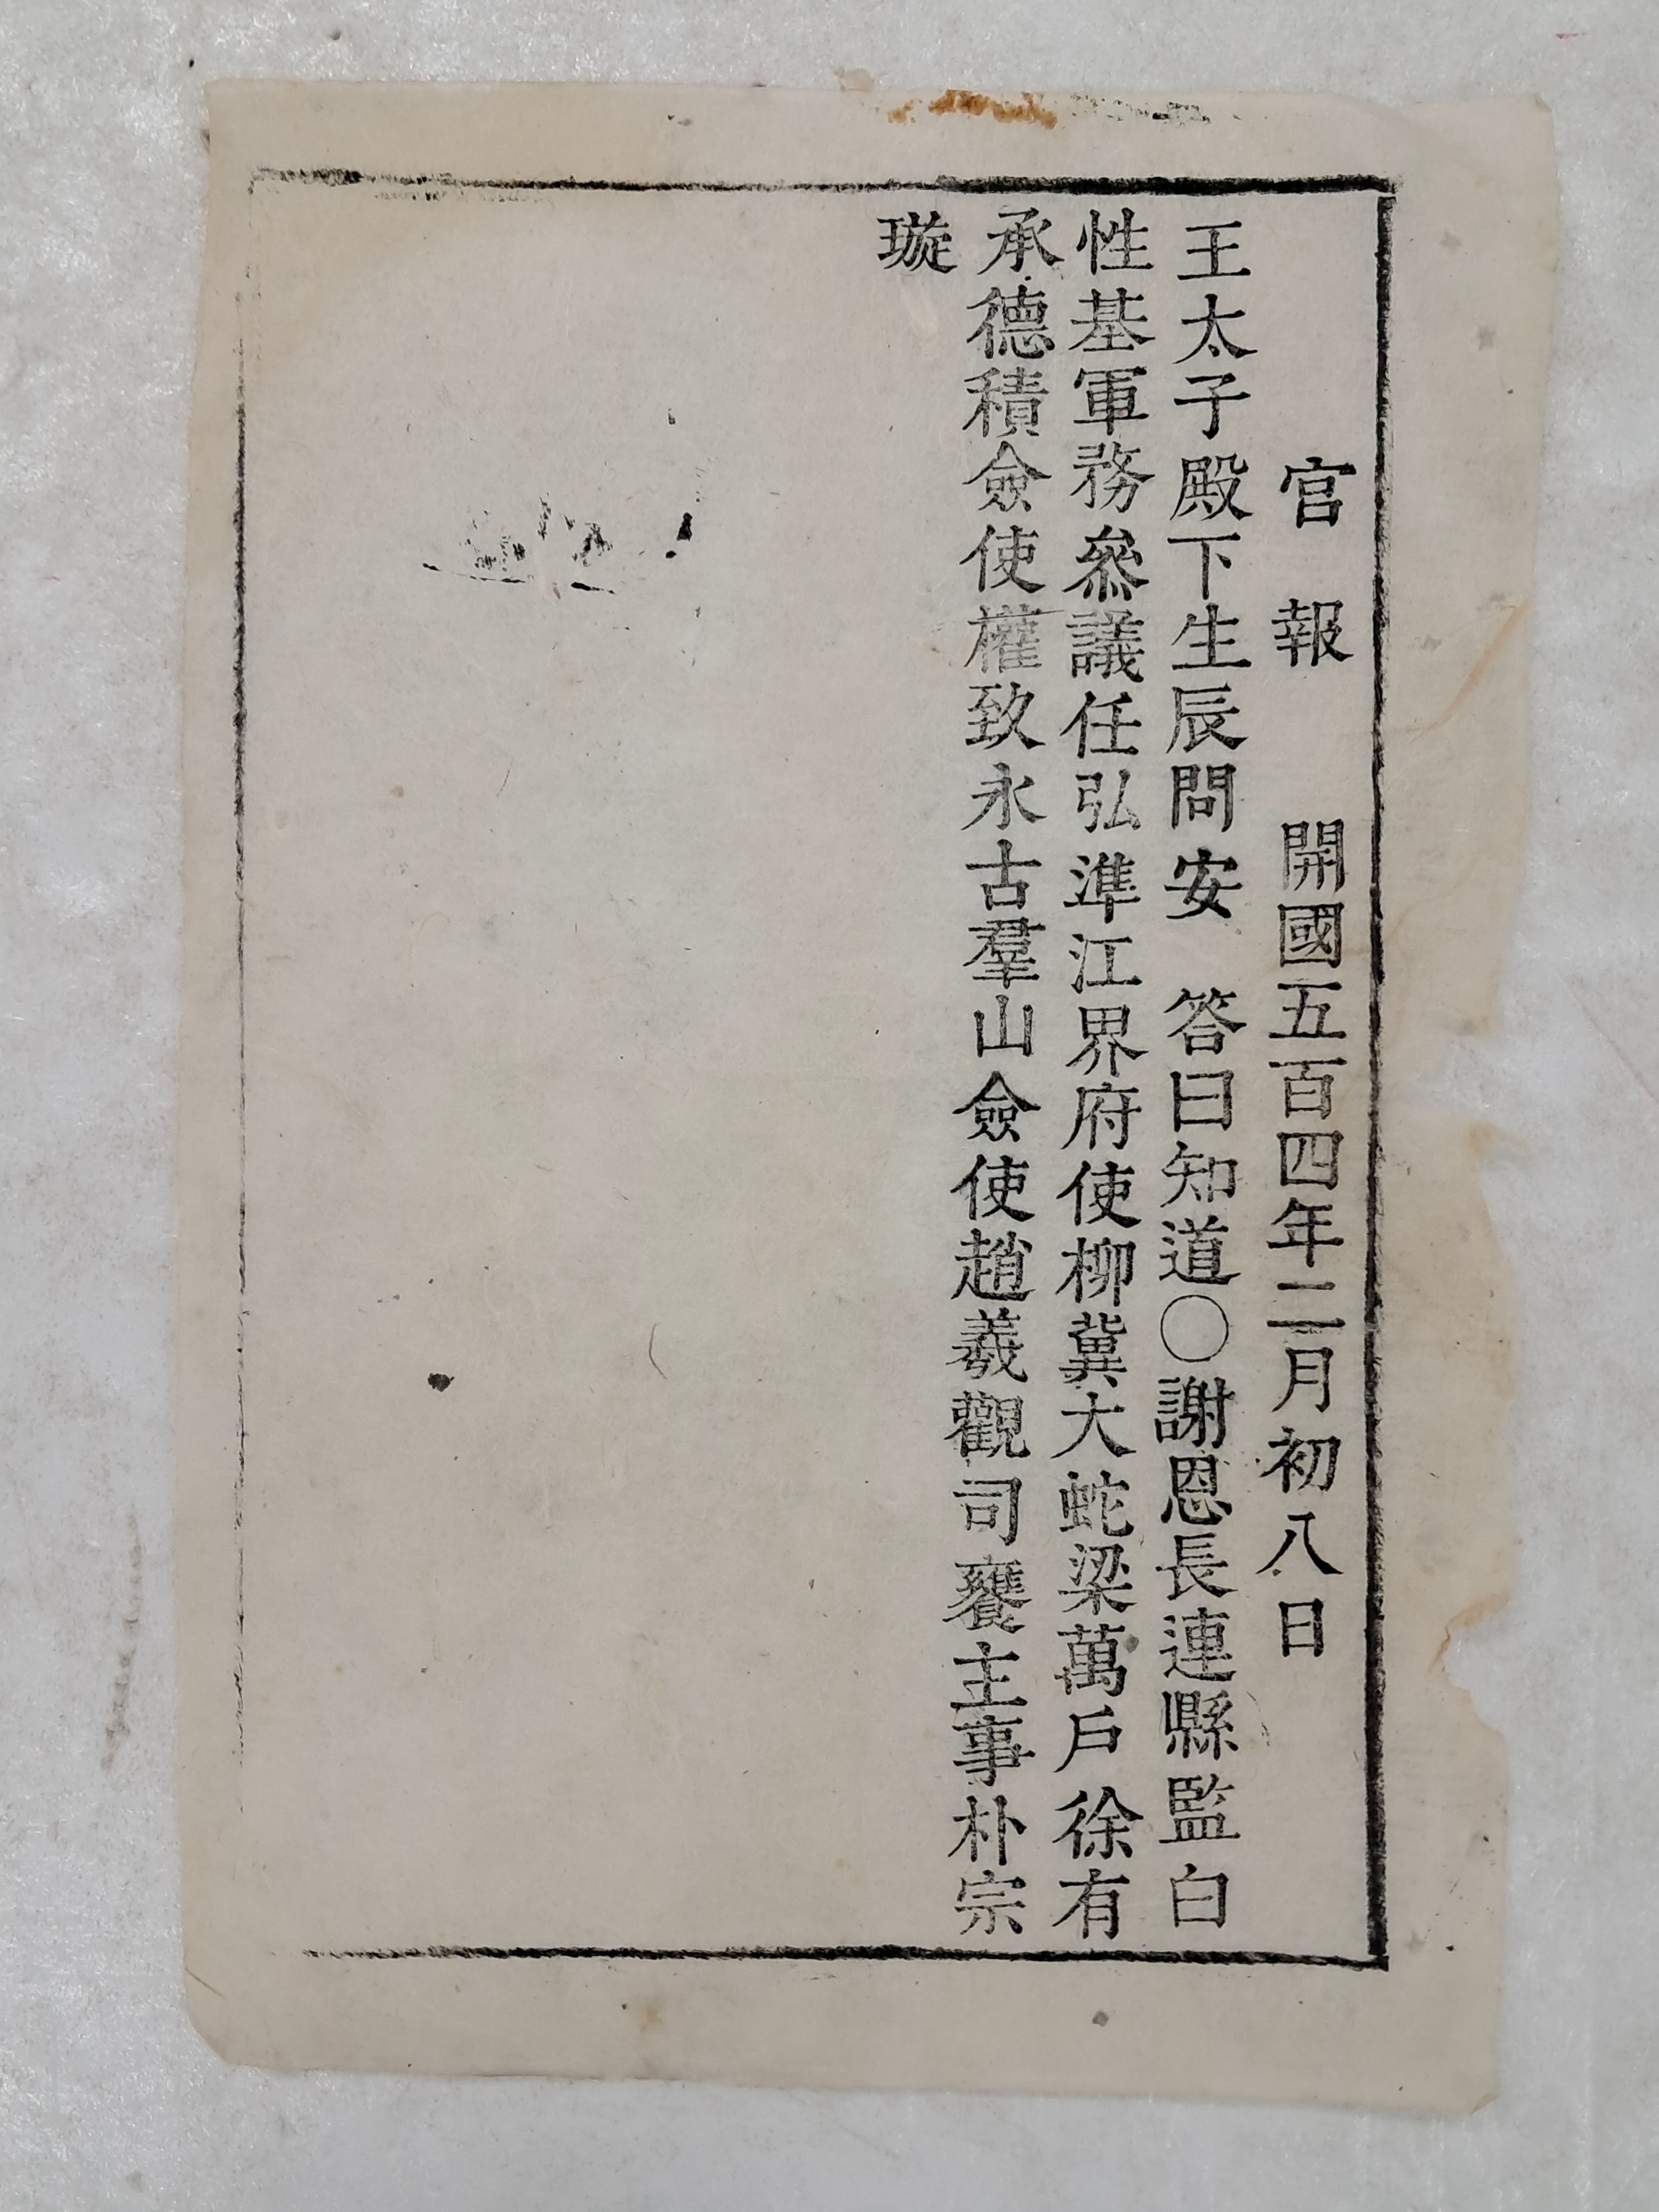 官報 開國五百四年二月初八日
王太子殿下生辰問安 答曰知道○謝恩長連縣監白
性基軍務叅議任弘準江界府使柳冀大蛇梁萬戶徐有
承德積僉使權致永古羣山僉使趙羲觀司饔主事朴宗
璇